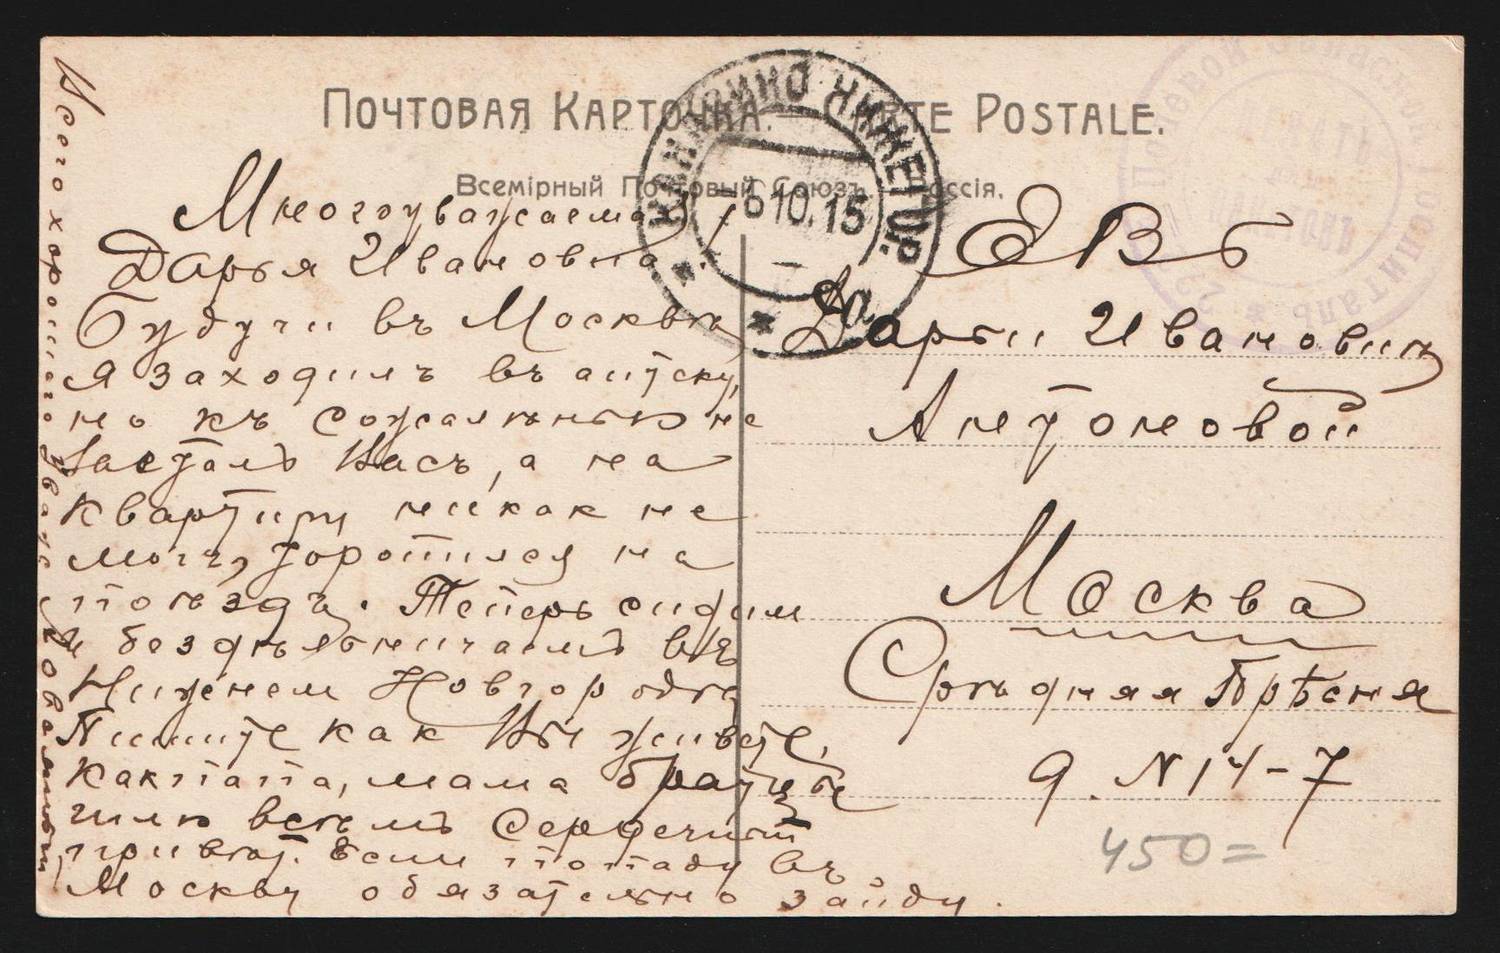 ПОЧТОВАЯ КАРТОЧКА. CARTE POSTALE.
Всемірный Почтовый Союзъ. Россія.
КАНАВИНО НИЖЕГОР.
6 10. 15
Полевой Запасной Госпиталь
ПЕЧАТЬ
Многоуважаемая
Дарья Ивановна.
Будучи въ Москвѣ
я заходилъ въ аптеку,
но къ сожалѣнью не
засталъ Васъ, а на
квартиру никак не
могъ, торопился на
поѣздъ. Теперь сидим
и бездѣльничаемъ въ
Нижнем Новгородѣ
Пишите как Вы живете,
как папа, мама братцы
шлю всѣмъ сердечный
привѣт. Если попаду въ
Москву обязательно зайду.
Всего хорошего уважающий
ЕВБ
Дарьи Ивановнѣ
Антоновой
Москва
Срѣдняя Прѣсня
д. N 14-7
450=